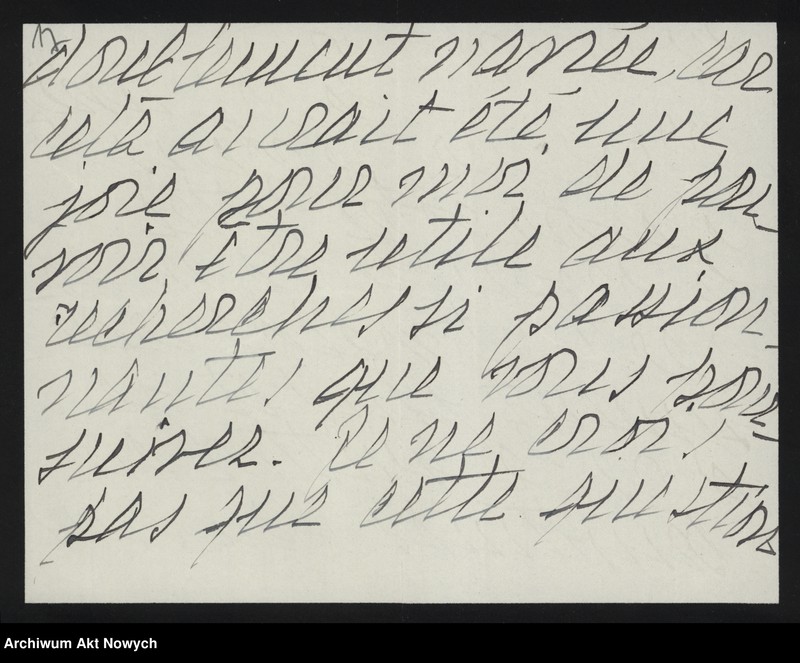 doublement navrée, car
cela aurait été une
joie pour moi de pou-
voir être utile aux
recherches si passion-
nantes que vous pour-
suivez. Je ne crois
pas que cette question
Archiwum Akt Nowych